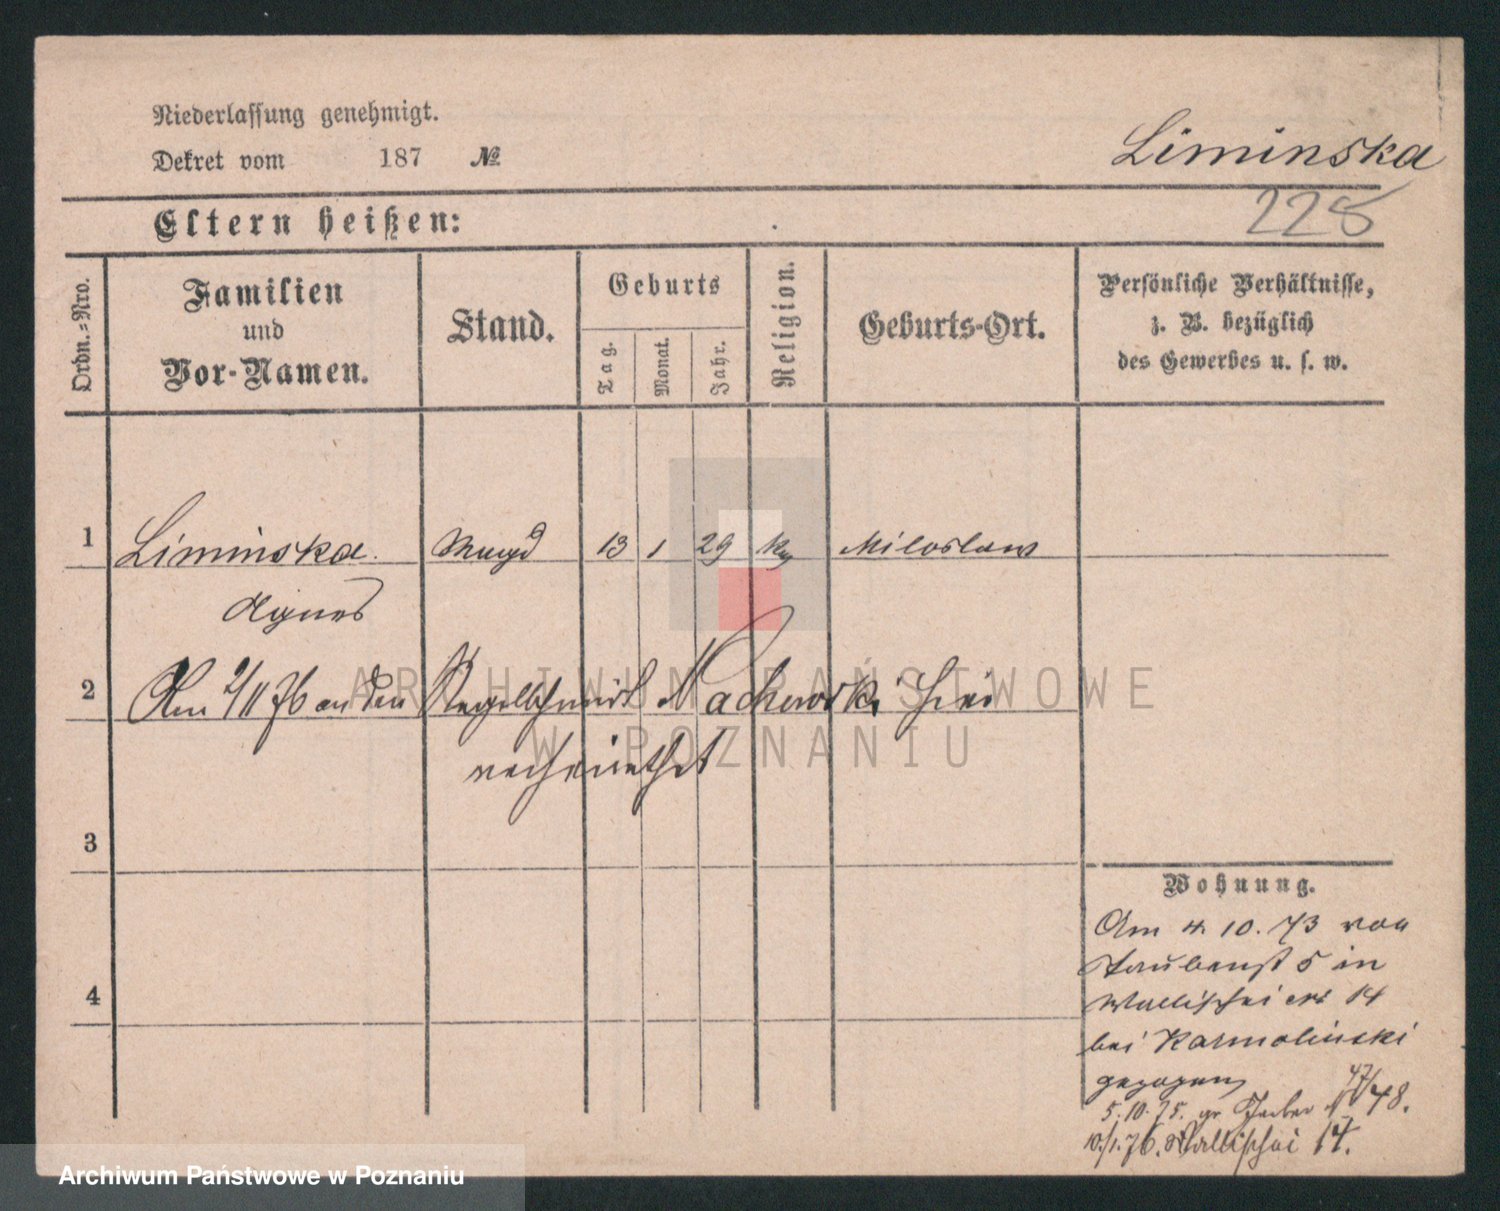 Niederlassung genehmigt.
Dekret vom 187 №
Liminska
228
Eltern heißen:
Ordn.=Nro.
Familien
und
Vor-Namen.
Stand.
Geburts
Tag.
Monat.
Jahr.
Religion.
Geburts-Ort.
Persönliche Verhältnisse,
z. B. bezüglich
des Gewerbes u. s. w.
1 Liminska Magd 13 1 29 Miloslaw
Agnes
2 Am 2/11 76 an den Nachowski hier
verheirathet
3
4
Wohnung.
Am 4. 10. 73 von
Taubenst 5 in
Wallischei 14
bei Karmolinski
gezogen
5. 10. 75. gr Gerber 47/48.
10./1. 76. Wallischei 14.
ARCHIWUM PAŃSTWOWE
W POZNANIU
Archiwum Państwowe w Poznaniu